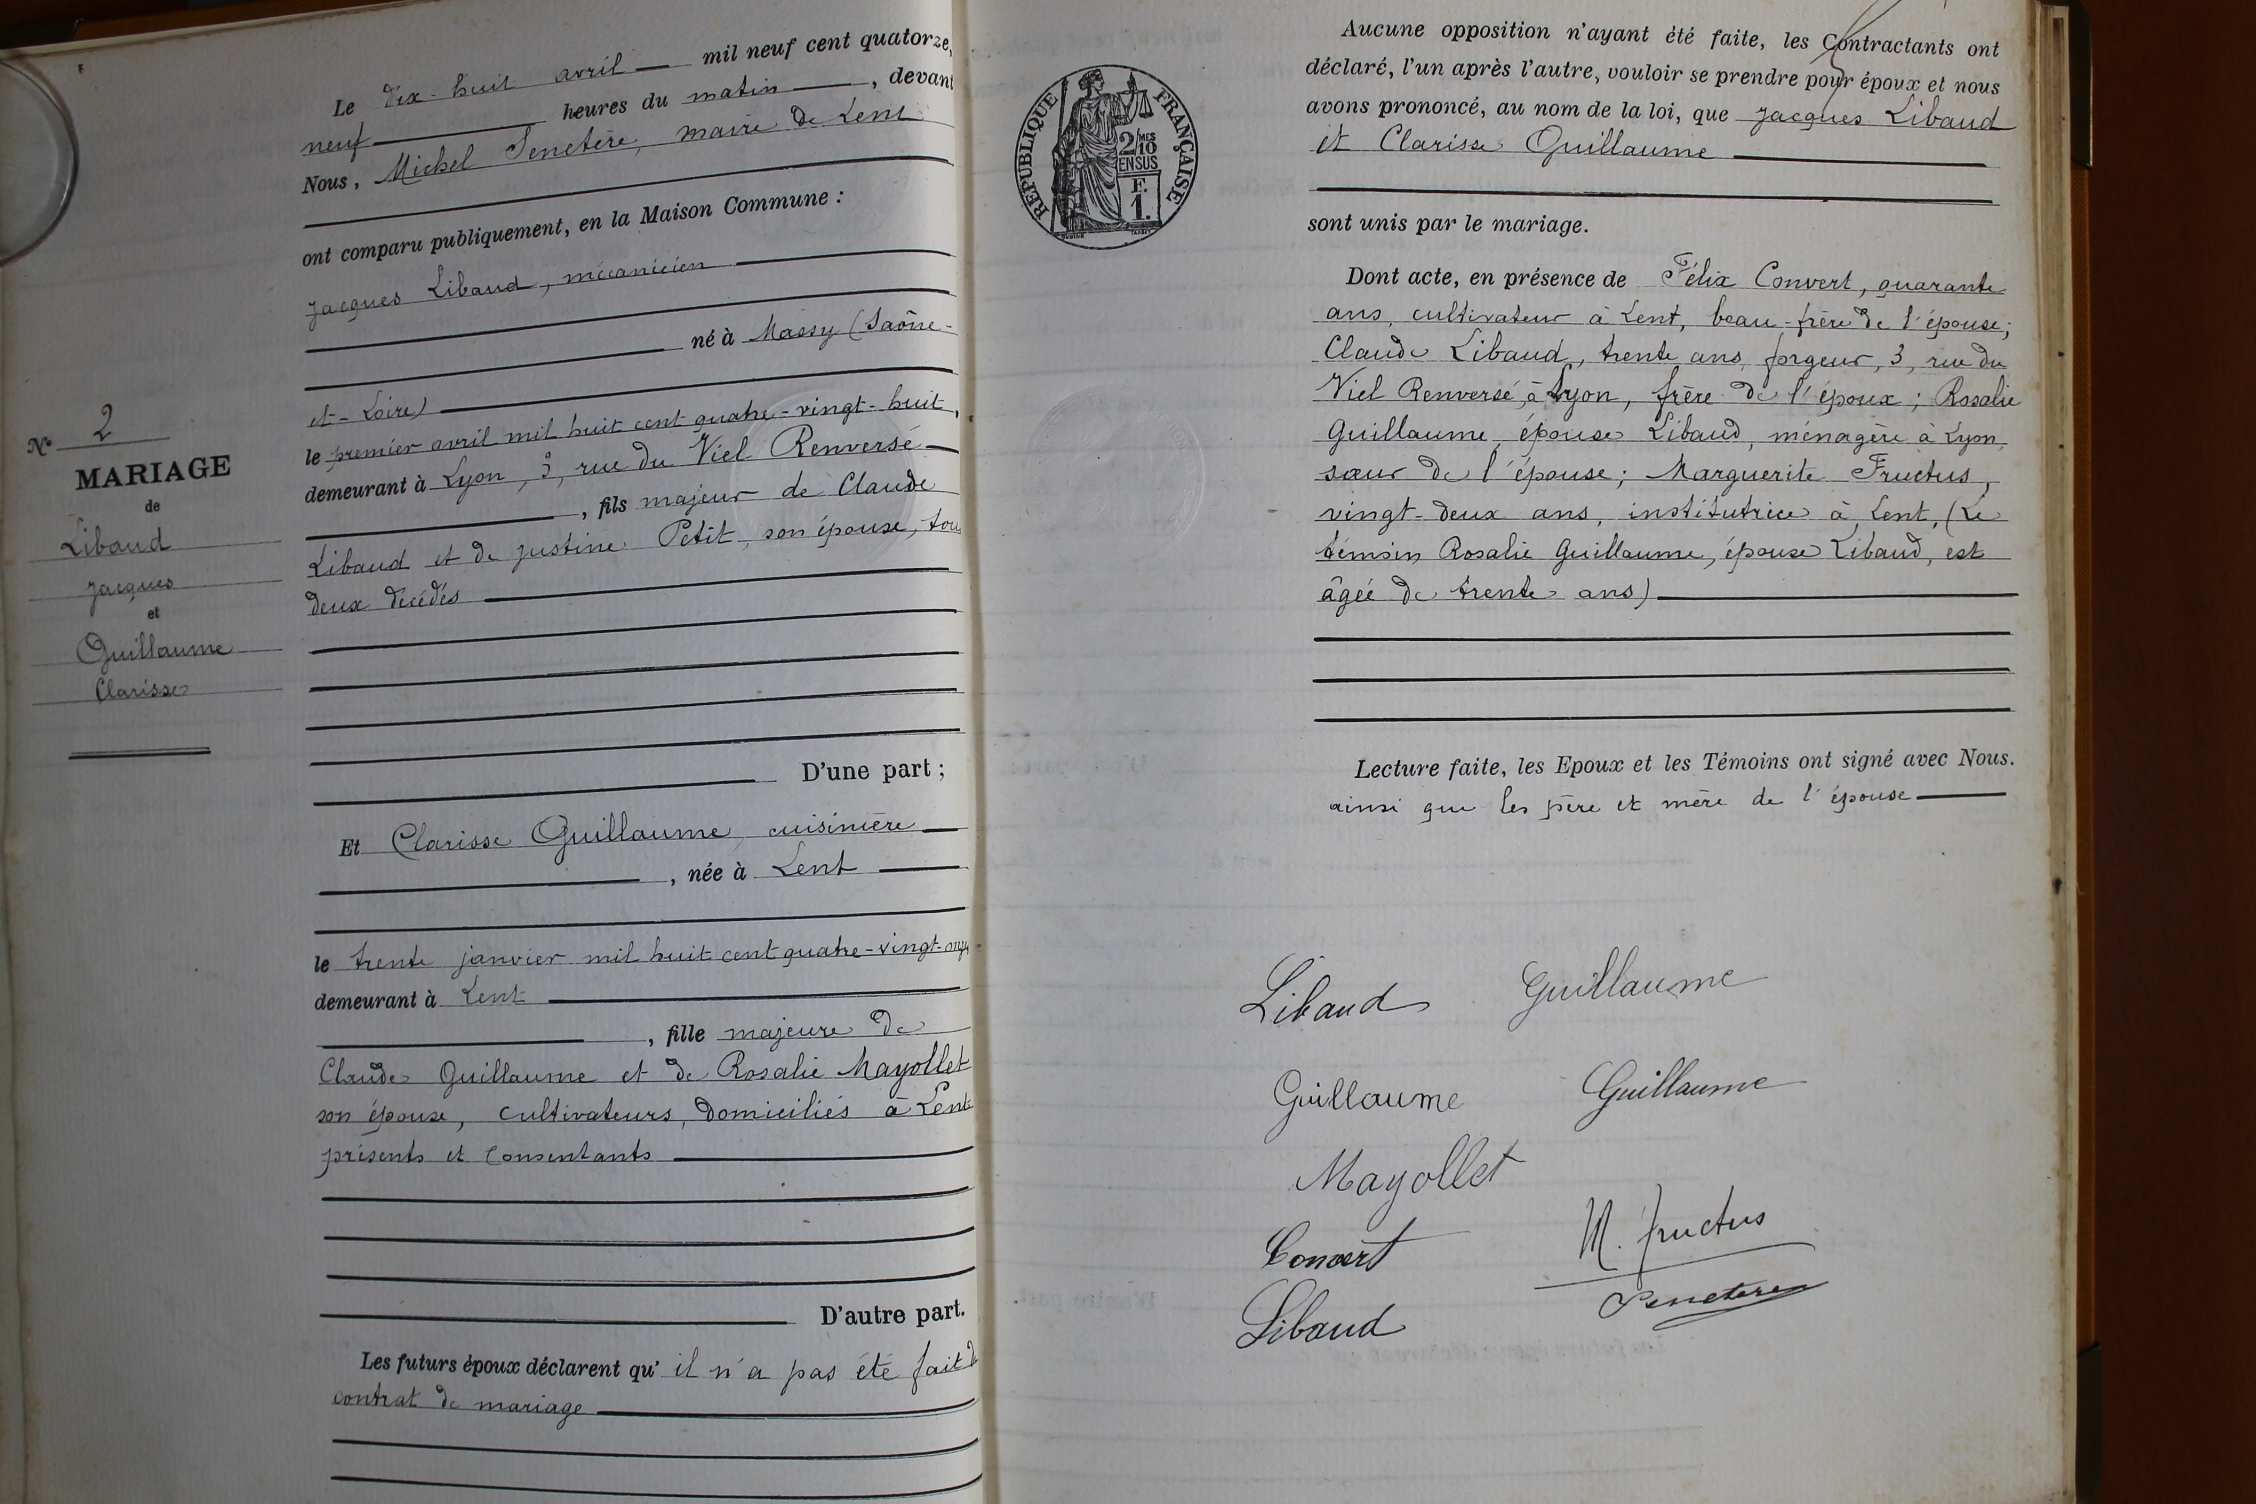 Le dix-huit avril mil neuf cent quatorze,
neuf heures du matin, devant
Nous, Michel Senetère, maire de Lent
ont comparu publiquement, en la Maison Commune :
Jacques Libaud, mécanicien
né à Massy (Saône-
et-Loire)
le premier avril mil huit cent quatre-vingt-huit,
demeurant à Lyon, 3, rue du Viel Renversé
, fils majeur de Claude
Libaud et de Justine Petit, son épouse, tous
deux décédés
N° 2
MARIAGE
de
Libaud
Jacques
et
Guillaume
Clarisse
D'une part ;
Et Clarisse Guillaume, cuisinière
, née à Lent
le trente janvier mil huit cent quatre-vingt-onze
demeurant à Lent
, fille majeure de
Claude Guillaume et de Rosalie Mayollet
son épouse, cultivateurs, domiciliés à Lent
présents et consentants
D'autre part.
Les futurs époux déclarent qu'il n'a pas été fait de
contrat de mariage
RÉPUBLIQUE FRANÇAISE
2/10 MES
EN SUS
F.
1.
Aucune opposition n'ayant été faite, les Contractants ont
déclaré, l'un après l'autre, vouloir se prendre pour époux et nous
avons prononcé, au nom de la loi, que Jacques Libaud
et Clarisse Guillaume
sont unis par le mariage.
Dont acte, en présence de Félix Convert, quarante
ans, cultivateur à Lent, beau-frère de l'épouse;
Claude Libaud, trente ans, forgeur, 3, rue du
Viel Renversé, à Lyon, frère de l'époux; Rosalie
Guillaume épouse Libaud, ménagère à Lyon,
sœur de l'épouse; Marguerite Fructus,
vingt-deux ans, institutrice à Lent, (Le
témoin Rosalie Guillaume, épouse Libaud, est
âgée de trente ans)
Lecture faite, les Epoux et les Témoins ont signé avec Nous.
ainsi que les père et mère de l'épouse
Libaud Guillaume
Guillaume Guillaume
Mayollet
Convert M. Fructus
Libaud Senetère